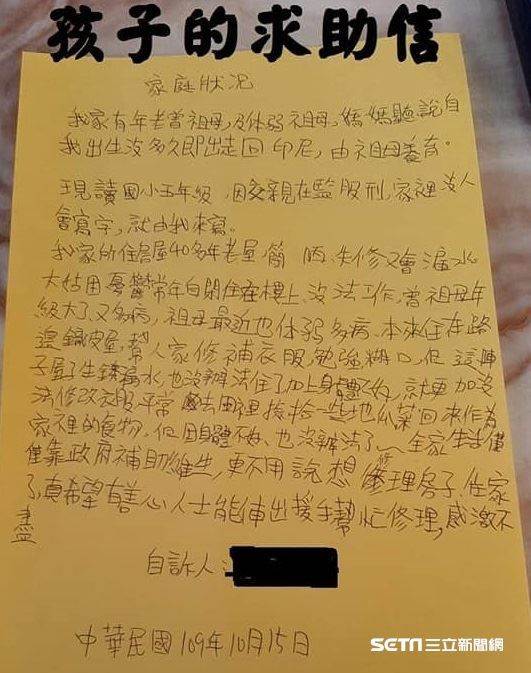 孩子的求助信
家庭狀況
我家有年老曾祖母,及体弱祖母,媽媽聽說自
我出生沒多久即出走回印尼,由祖母養育。
現讀國小五年級,因父親在監服刑,家裡沒人
會寫字,就由我來寫。
我家所住舊屋40多年老屋,簡陋、失修又會漏水
大姑因憂鬱常年自閉住在樓上、沒法工作,曾祖母年
級大了、又多病,祖母最近也体弱多病、本來住在路
邊鐵皮屋,幫人家修補衣服勉強糊口,但這陣
子屋子生鏽漏水,也沒辦法住了加上身體不好,就更加沒
法修改衣服平常去田裡撿拾一些地瓜菜回來作為
家裡的食物,但因身體不好、也沒辦法了,全家生活僅
僅靠政府補助維生,更不用說想修理房子、住家
了真希望有善心人士能伸出援手幫忙修理,感激不
盡
自訴人:
中華民國109年10月15日
SETN三立新聞網